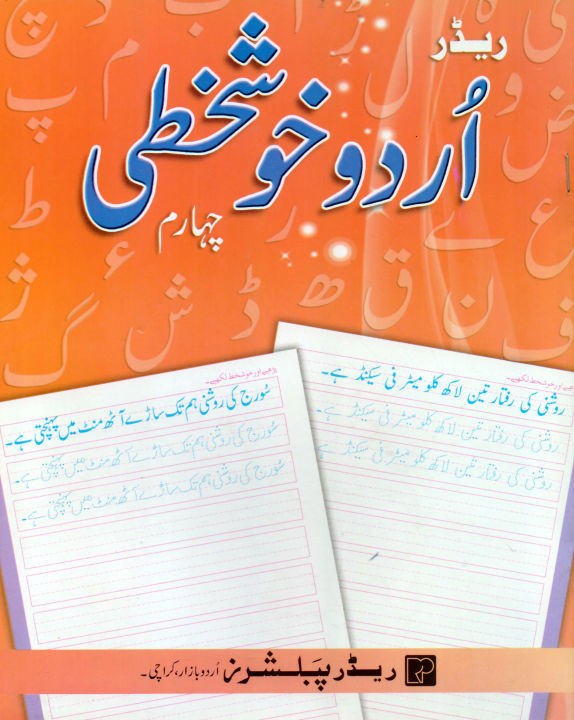 ریڈر
اُردو خوشخطی
چہارم
پڑھیے اور خوشخط لکھیے۔
روشنی کی رفتار تین لاکھ کلو میٹر فی سیکنڈ ہے۔
روشنی کی رفتار تین لاکھ کلو میٹر فی سیکنڈ ہے
روشنی کی رفتار تین لاکھ کلو میٹر فی سیکنڈ ہے
پڑھیے اور خوشخط لکھیے۔
سُورج کی روشنی ہم تک ساڑے آٹھ منٹ میں پہنچتی ہے۔
سُورج کی روشنی ہم تک ساڑے آٹھ منٹ میں پہنچتی ہے۔
سُورج کی روشنی ہم تک ساڑے آٹھ منٹ میں پہنچتی ہے۔
ریڈر پبلشرز اُردو بازار، کراچی۔